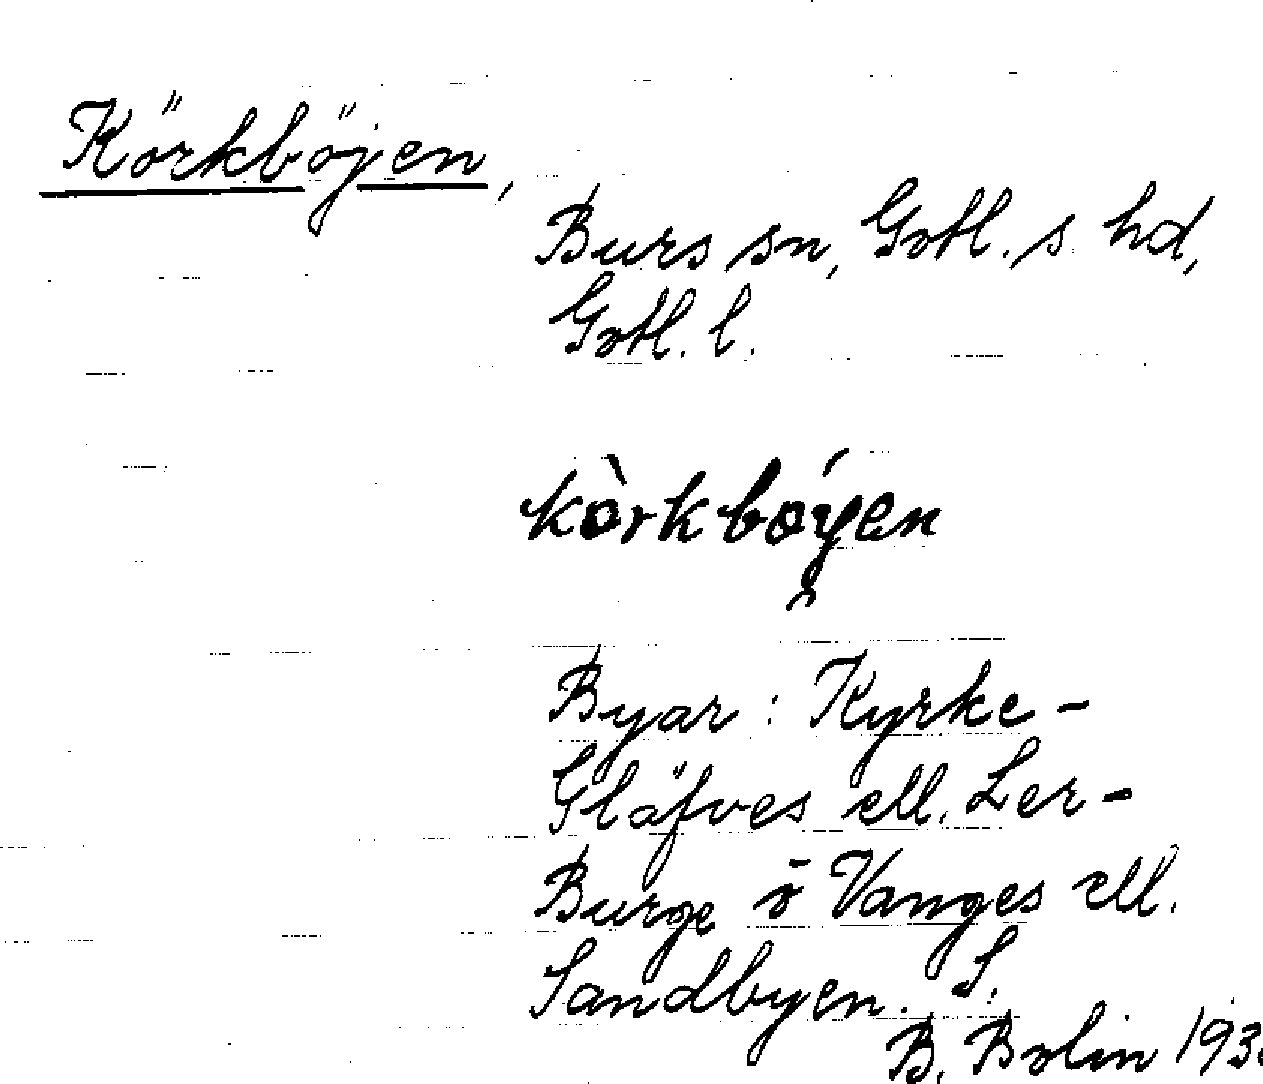 Körkböjen,
Burs sn, Gotl. s. hd,
Gotl. l.
kòrkbo´yen
Byar: Kyrke-
Gläfves ell. Ler-
Burge o Vanges ell.
Sandbyen. S.
B. Bolin 193